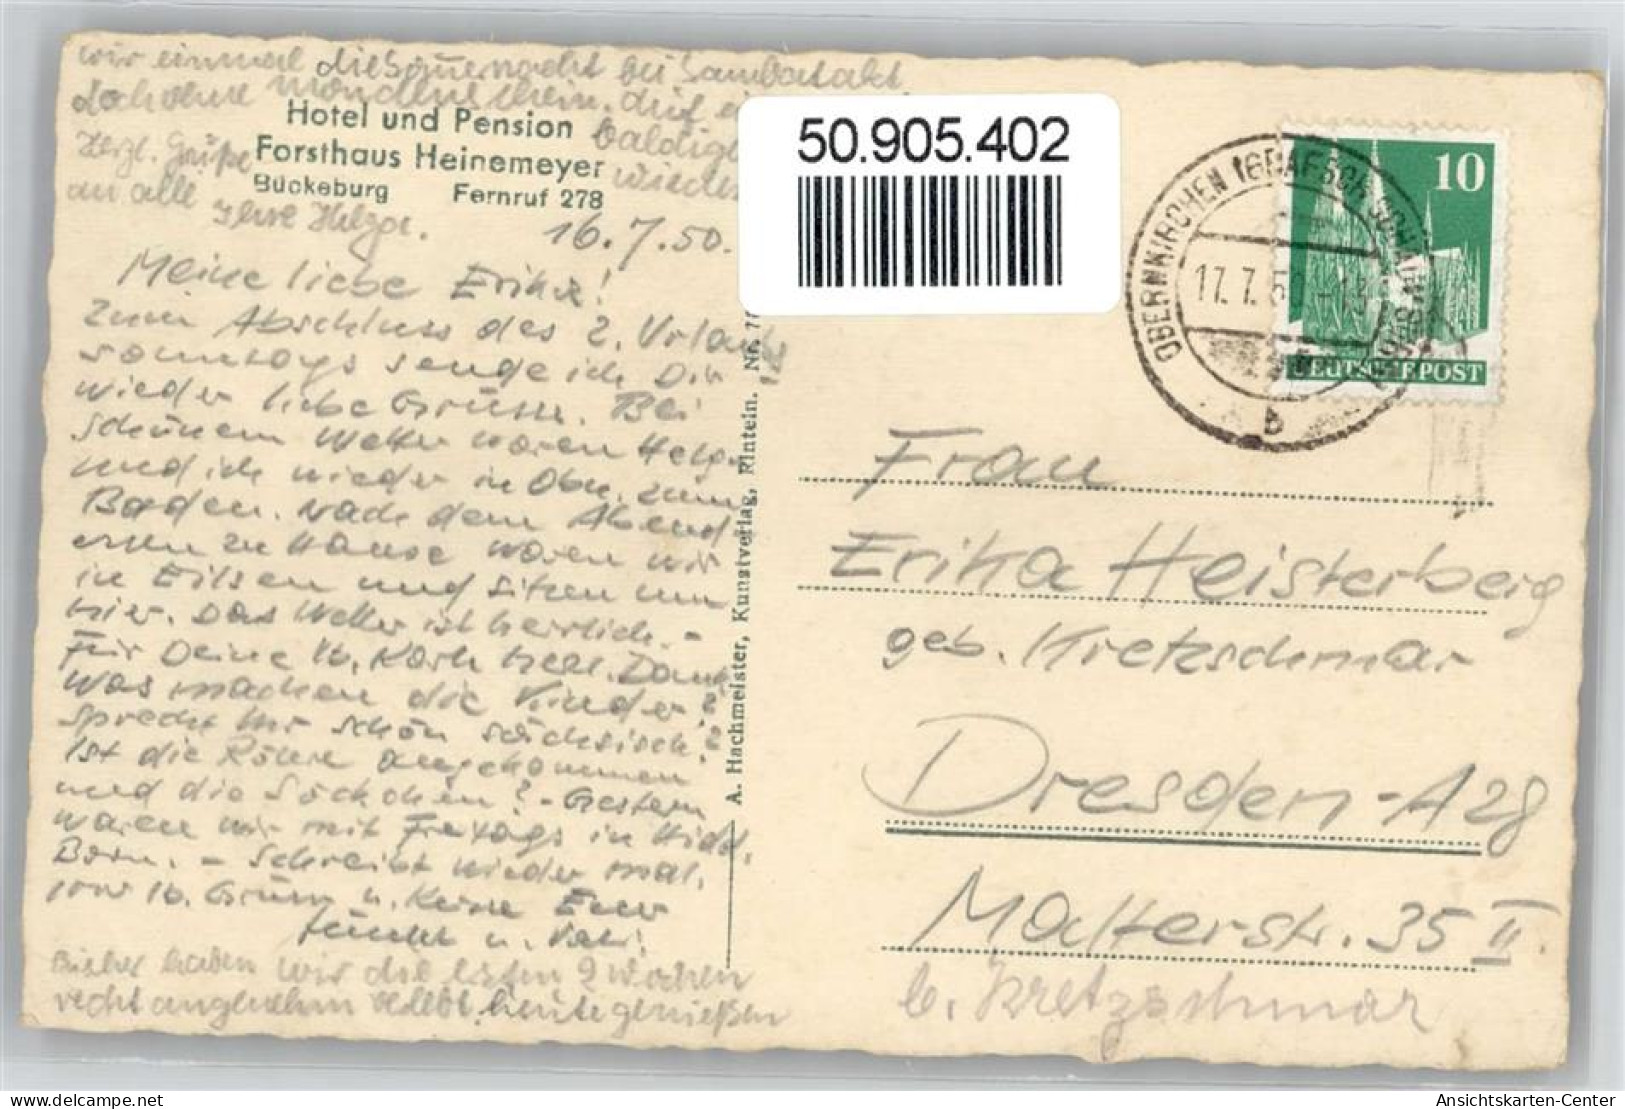 wir einmal die Sauernacht bei
doch ohne Mondenschein. Auf
Hotel und Pension
Forsthaus Heinemeyer
Bückeburg Fernruf 278
baldiges
Wieder
Herzl. Grüße
an alle
Ihre Helga.
16.7.50.
Meine liebe Erika!
Zum Abschluss des 2. Urlaubs
sonntags sende ich Dir
wieder liebe Grüsse. Bei
schönem Wetter waren Helga
und ich wieder in Obk. zum
Baden. Nach dem Abend-
essen zu Hause waren wir
in Eilsen und sitzen nun
hier. Das Wetter ist herrlich. -
Für Deine lb. Karte herzl. Dank.
Was machen die Kinder?
Sprecht Ihr schön sächsisch?
Ist die Röhre angekommen
und die Söckchen? - Gestern
waren wir mit Freitags in
Born. - Schreibt wieder mal.
lb. Grüsse u. Küsse Euer
u. Vati.
Bisher haben wir die ersten 2 Wochen
recht angenehm verlebt, heute genießen
A. Hachmeister, Kunstverlag, Rinteln. Nr.
50.905.402
OBERNKIRCHEN (GRAFSCH SCHAUMBURG)
17.7.50
b
10
DEUTSCHE POST
Frau
Erika Heisterberg
geb. Kretzschmar
Dresden-A 28
Malterstr. 35 II.
b. Kretzschmar
Ansichtskarten-Center
delcampe.net